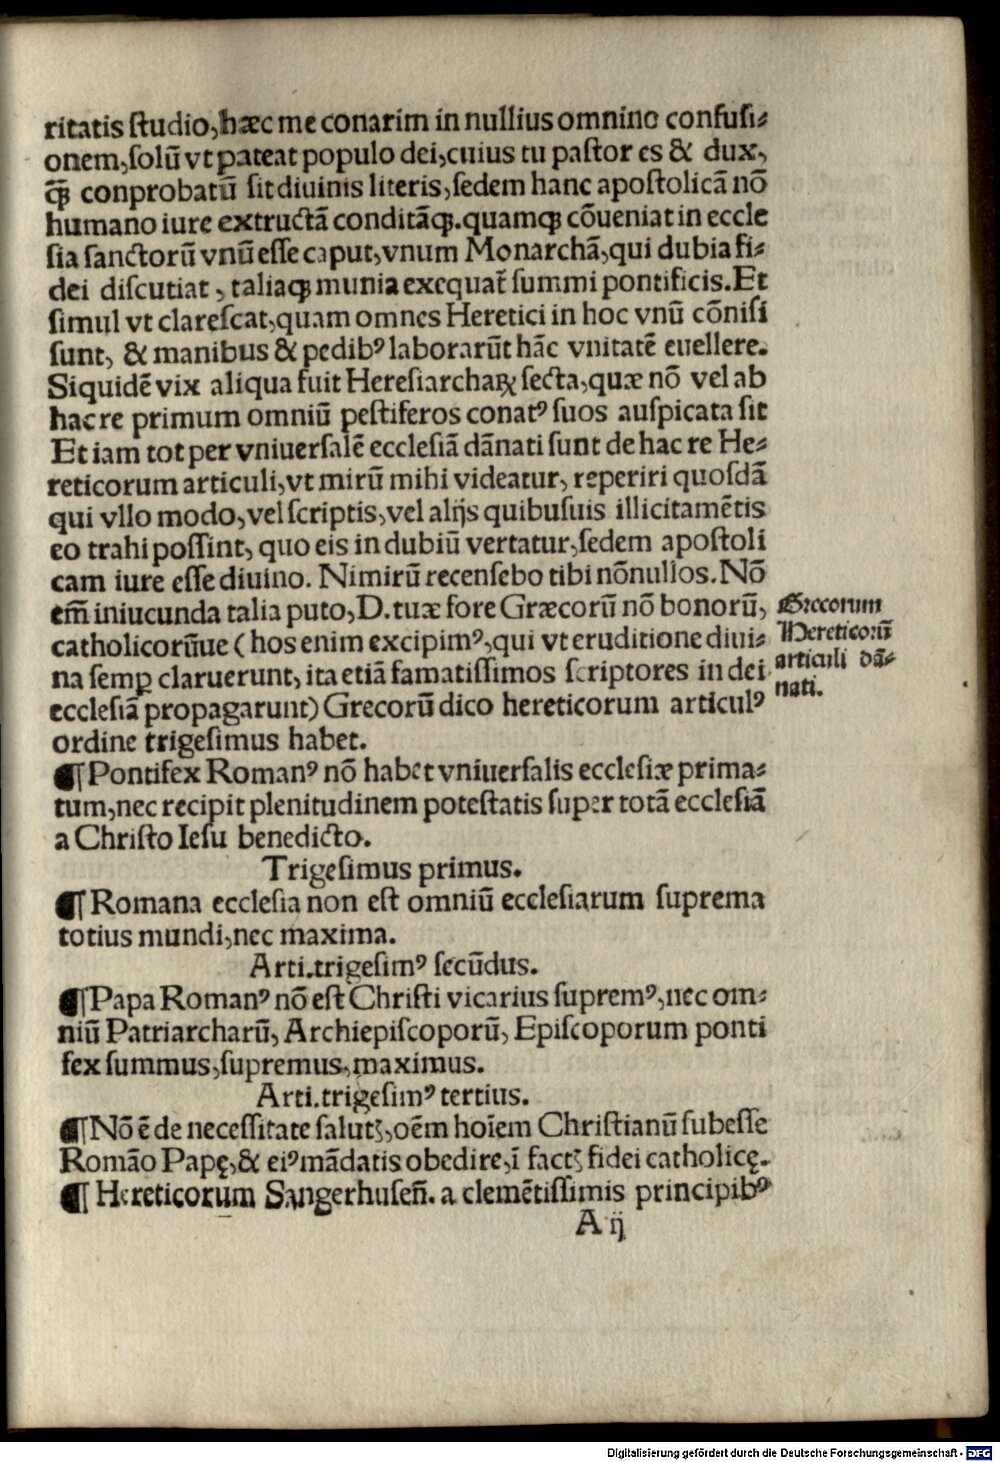 ritatis ſtudio,hæc me conarim in nullius omnino confuſi⸗
onem,ſolū vt pateat populo dei,cuius tu paſtor es & dux,
ꝙ̃ conprobatū ſit diuinis literis,ſedem hanc apoſtolicã nõ
humano iure extructã conditãꝙ.quamꝙ cõueniat in eccle
ſia ſanctorū vnū eſſe caput,vnum Monarchã,qui dubia fi⸗
dei diſcutiat, taliaꝙ munia exequat̃ ſummi pontificis.Et
ſimul vt clareſcat,quam omnes Heretici in hoc vnū cõniſi
ſunt, & manibus & pedibꝰ laborarūt hãc vnitatē euellere.
Siquidē vix aliqua fuit Hereſiarchaꝝ ſecta,quæ nõ vel ab
hac re primum omniū peſtiferos conatꝰ ſuos auſpicata ſit
Et iam tot per vniuerſalē eccleſiã dãnati ſunt de hac re He⸗
reticorum articuli,vt mirū mihi videatur, reperiri quoſdã
qui vllo modo,vel ſcriptis,vel alijs quibuſuis illicitamētis
eo trahi poſſint, quo eis in dubiū vertatur,ſedem apoſtoli
cam iure eſſe diuino. Nimirū recenſebo tibi nõnullos.Nõ
em̃ iniucunda talia puto,D.tuæ fore Græcorū nõ bonorū,
catholicorūue ( hos enim excipimꝰ,qui vt eruditione diui⸗
na ſemꝑ claruerunt, ita etiã famatiſſimos ſcriptores in dei
eccleſiã propagarunt) Grecorū dico hereticorum articulꝰ
ordine trigeſimus habet.
Grecorum
Hereticorū
articuli dã⸗
nati.
¶ Pontifex Romanꝰ nõ habet vniuerſalis eccleſiæ prima⸗
tum,nec recipit plenitudinem poteſtatis ſuper totã eccleſiã
a Chriſto Ieſu benedicto.
Trigeſimus primus.
¶ Romana eccleſia non eſt omniū eccleſiarum ſuprema
totius mundi,nec maxima.
Arti.trigeſimꝰ ſecūdus.
¶ Papa Romanꝰ nõ eſt Chriſti vicarius ſupremꝰ,nec om⸗
niū Patriarcharū, Archiepiſcoporū, Epiſcoporum ponti
fex ſummus,ſupremus,maximus.
Arti.trigeſimꝰ tertius.
¶ Nõ ē de neceſſitate ſalutꝭ,oēm hoīem Chriſtianū ſubeſſe
Romão Papę,& eiꝰ mãdatis obedire,ī factꝭ fidei catholicę.
¶ Hereticorum Sangerhuſeñ. a clemētiſſimis principibꝰ
A ij
Digitalisierung gefördert durch die Deutsche Forschungsgemeinschaft - DFG